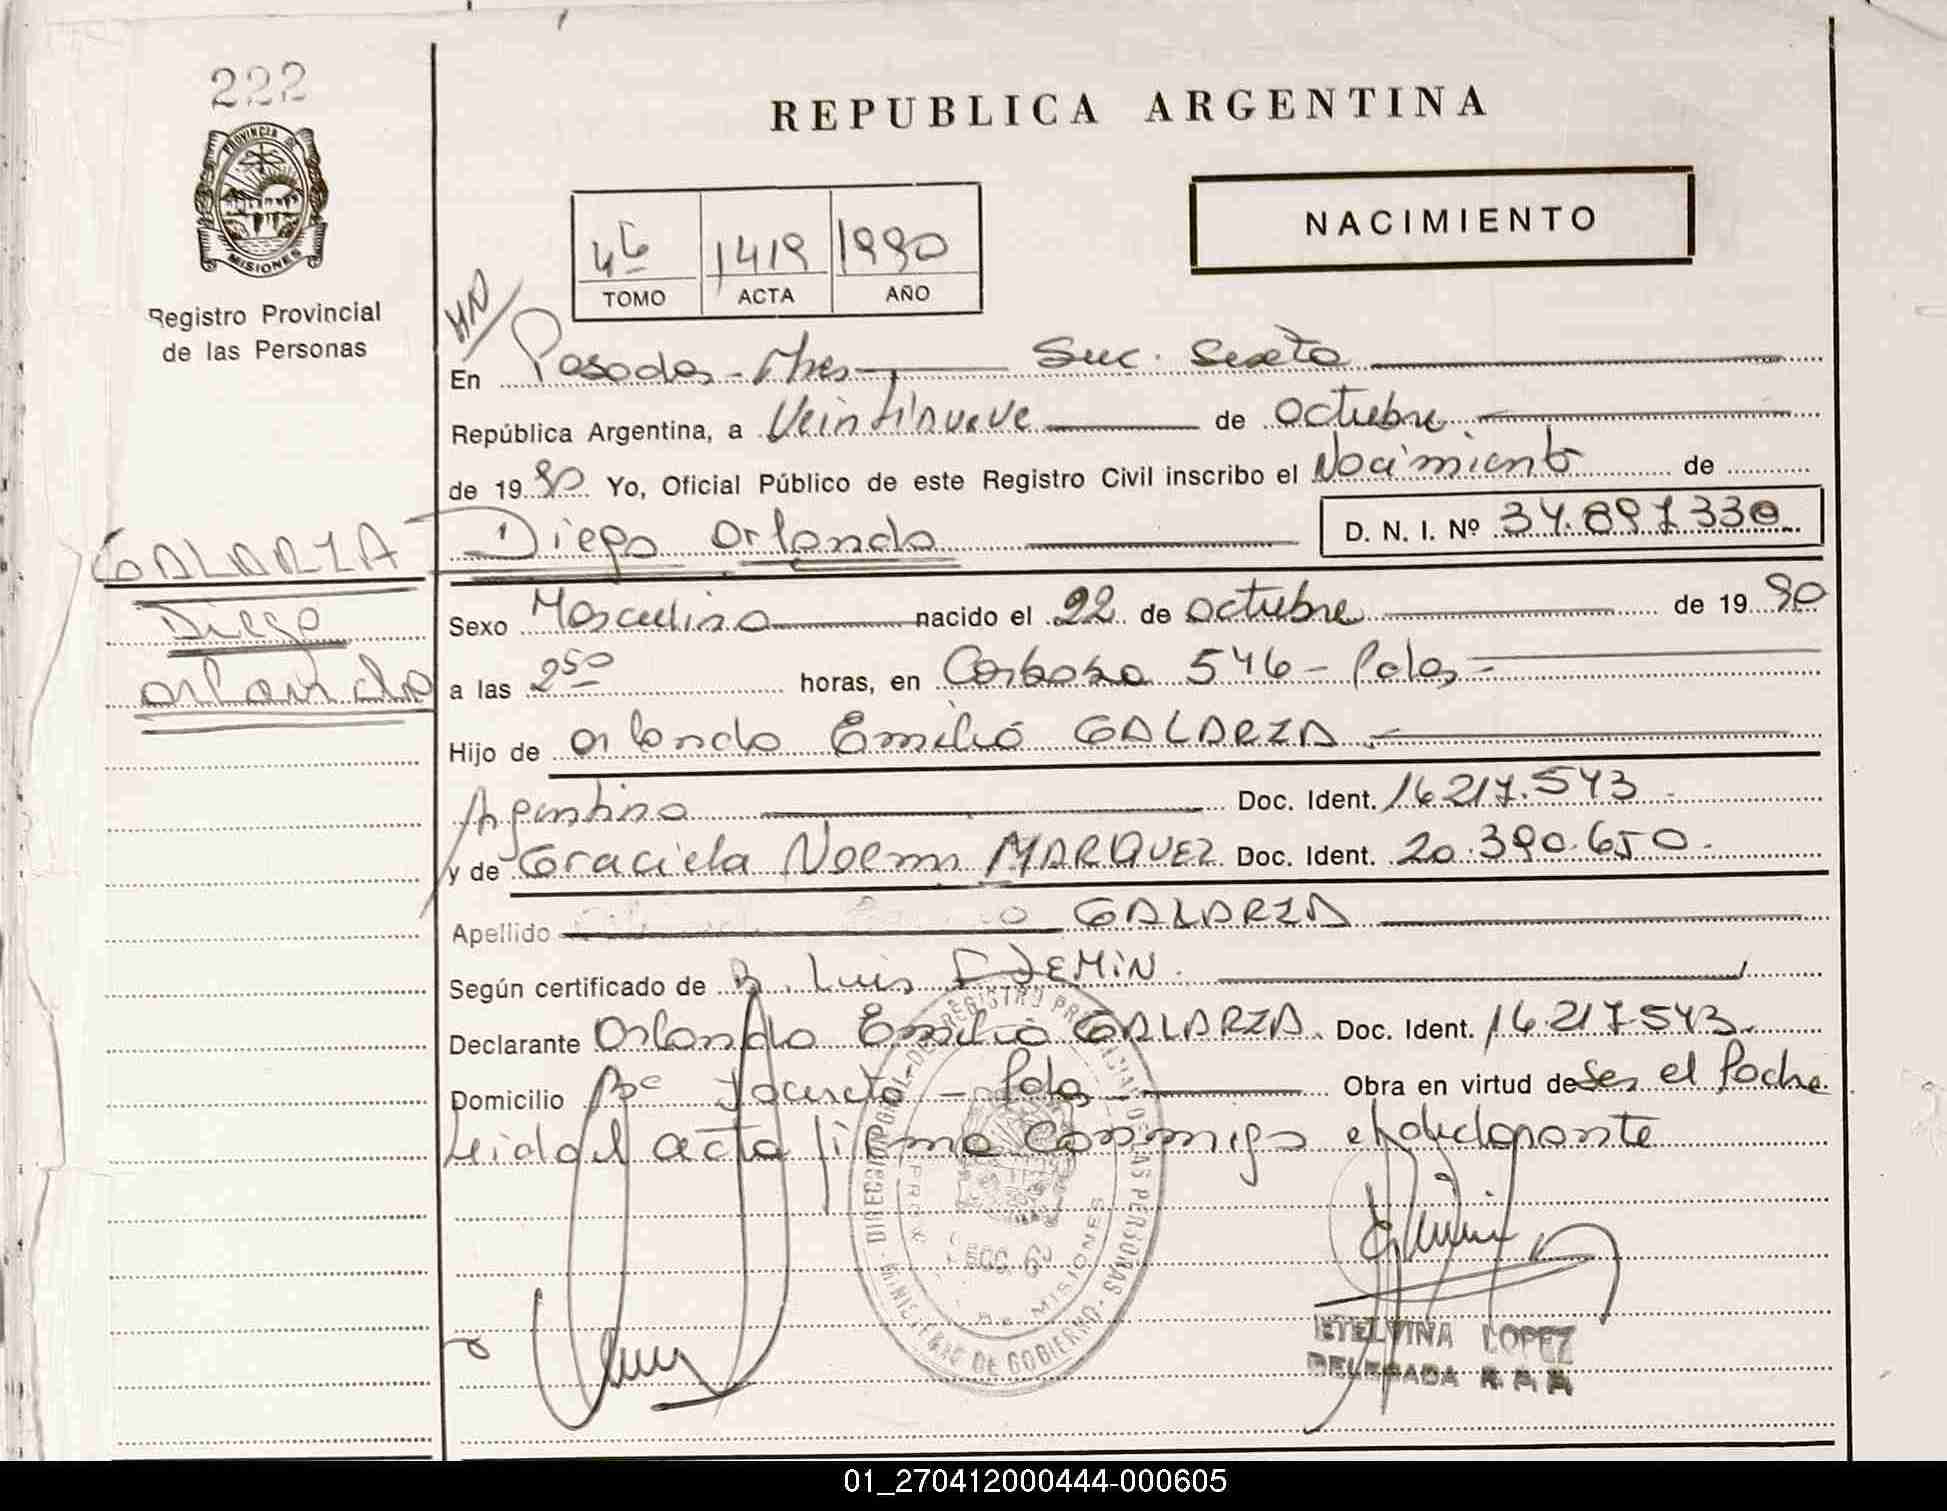 222
PROVINCIA DE
MISIONES
Registro Provincial
de las Personas
REPUBLICA ARGENTINA
NACIMIENTO
1419 1990
TOMO ACTA AÑO
En Posadas - Mnes Suc. Sexta
República Argentina, a Veintinueve de octubre
de 1990 Yo, Oficial Público de este Registro Civil inscribo el Nacimiento de
GALARZA Diego Orlando D. N. I. Nº 34.897.330
Diego
Orlando
Sexo Masculino nacido el 22 de octubre de 1990
a las 2⁵⁰ horas, en 546 - Pdas
Hijo de Orlando Emilio GALARZA
Argentino Doc. Ident. 16.217.543
y de Graciela Noemi MARQUEZ Doc. Ident. 20.390.650.
Apellido GALARZA
Según certificado de Luis
Declarante Orlando Emilio GALARZA Doc. Ident. 16.217.543
Domicilio Bº - Pdas Obra en virtud de Ser el Padre
Leida el acta firma conmigo el declarante
DIRECCION GRAL. DE REGISTRO PROVINCIAL DE LAS PERSONAS
MINISTERIO DE GOBIERNO
MISIONES
ETELVINA LOPEZ
DELEGADA
01_270412000444-000605